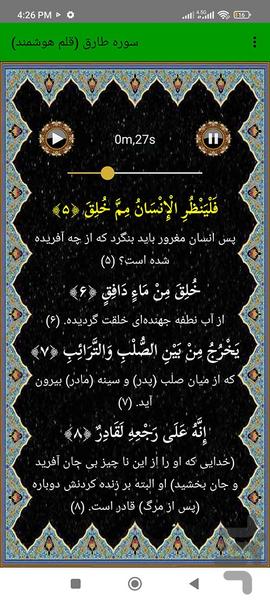 4:26 PM
سوره طارق (قلم هوشمند)
0m,27s
فَلْيَنْظُرِ الْإِنْسَانُ مِمَّ خُلِقَ ﴿۵﴾
پس انسان مغرور باید بنگرد که از چه آفریده
شده است؟ (۵)
خُلِقَ مِنْ مَاءٍ دَافِقٍ ﴿۶﴾
از آب نطفه جهنده‌ای خلقت گردیده. (۶)
يَخْرُجُ مِنْ بَيْنِ الصُّلْبِ وَالتَّرَائِبِ ﴿۷﴾
که از میان صلب (پدر) و سینه (مادر) بیرون
آید. (۷)
إِنَّهُ عَلَى رَجْعِهِ لَقَادِرٌ ﴿۸﴾
(خدایی که او را از این نا چیز بی جان آفرید
و جان بخشید) او البته بر زنده کردنش دوباره
(پس از مرگ) قادر است. (۸)